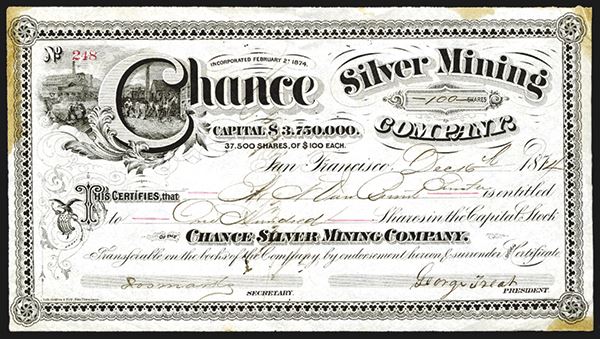 No 248
INCORPORATED FEBRUARY 2D 1874.
Chance Silver Mining
COMPANY.
100 SHARES
CAPITAL $3.750.000.
37.500 SHARES, OF $100 EACH.
San Francisco, Dec 16th 1874
THIS CERTIFIES, that Trustee is entitled
to One Hundred Shares in the Capital Stock
OF THE CHANCE SILVER MINING COMPANY.
Transferable on the books of the Company by endorsement hereon & surrender of this Certificate
George Treat
SECRETARY. PRESIDENT.